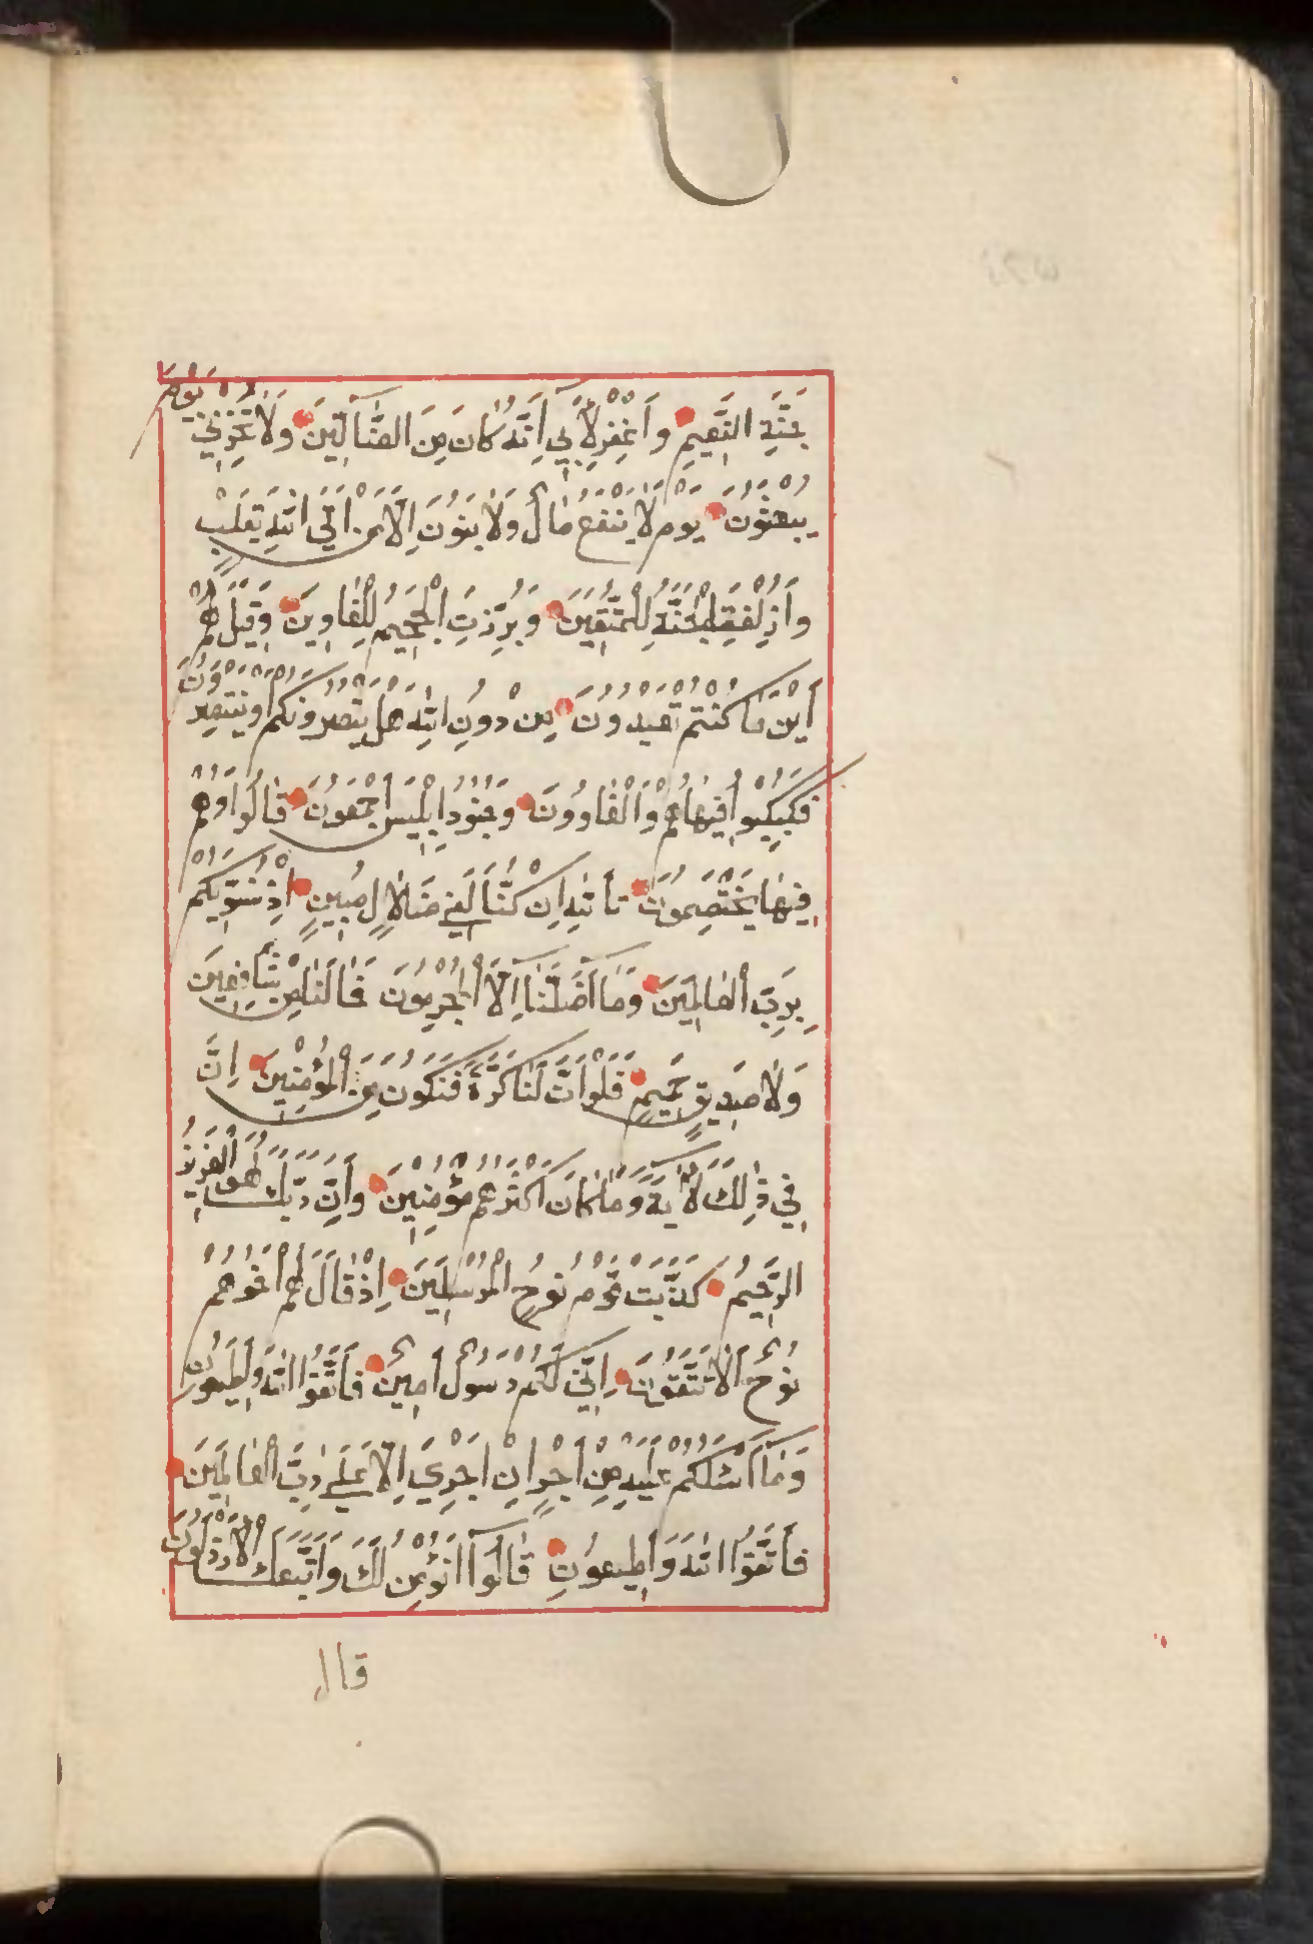 جَنَّةِ النَّعِيمِ وَاغْفِرْ لِأَبِي إِنَّهُ كَانَ مِنَ الضَّآلِّينَ وَلَا تُخْزِنِي يَوْمَ
يُبْعَثُونَ يَوْمَ لَا يَنْفَعُ مَالٌ وَلَا بَنُونَ إِلَّا مَنْ أَتَى اللهَ بِقَلْبٍ
وَأُزْلِفَتِ الْجَنَّةُ لِلْمُتَّقِينَ وَبُرِّزَتِ الْجَحِيمُ لِلْغَاوِينَ وَقِيلَ لَهُمْ
أَيْنَ مَا كُنْتُمْ تَعْبُدُونَ مِنْ دُونِ اللهِ هَلْ يَنْصُرُونَكُمْ أَوْ يَنْتَصِرُونَ
فَكُبْكِبُوا فِيهَا هُمْ وَالْغَاوُونَ وَجُنُودُ إِبْلِيسَ أَجْمَعُونَ قَالُوا وَهُمْ
فِيهَا يَخْتَصِمُونَ تَاللهِ إِنْ كُنَّا لَفِي ضَلَالٍ مُبِينٍ إِذْ نُسَوِّيكُمْ
بِرَبِّ الْعَالَمِينَ وَمَا أَضَلَّنَا إِلَّا الْمُجْرِمُونَ فَمَا لَنَا مِنْ شَافِعِينَ
وَلَا صَدِيقٍ حَمِيمٍ فَلَوْ أَنَّ لَنَا كَرَّةً فَنَكُونَ مِنَ الْمُؤْمِنِينَ إِنَّ
فِي ذَٰلِكَ لَآيَةً وَمَا كَانَ أَكْثَرُهُمْ مُؤْمِنِينَ وَإِنَّ رَبَّكَ لَهُوَ الْعَزِيزُ
الرَّحِيمُ كَذَّبَتْ قَوْمُ نُوحٍ الْمُرْسَلِينَ إِذْ قَالَ لَهُمْ أَخُوهُمْ
نُوحٌ أَلَا تَتَّقُونَ إِنِّي لَكُمْ رَسُولٌ أَمِينٌ فَاتَّقُوا اللهَ وَأَطِيعُونِ
وَمَا أَسْئَلُكُمْ عَلَيْهِ مِنْ أَجْرٍ إِنْ أَجْرِيَ إِلَّا عَلَى رَبِّ الْعَالَمِينَ
فَاتَّقُوا اللهَ وَأَطِيعُونِ قَالُوا أَنُؤْمِنُ لَكَ وَاتَّبَعَكَ الْأَرْذَلُونَ
قال